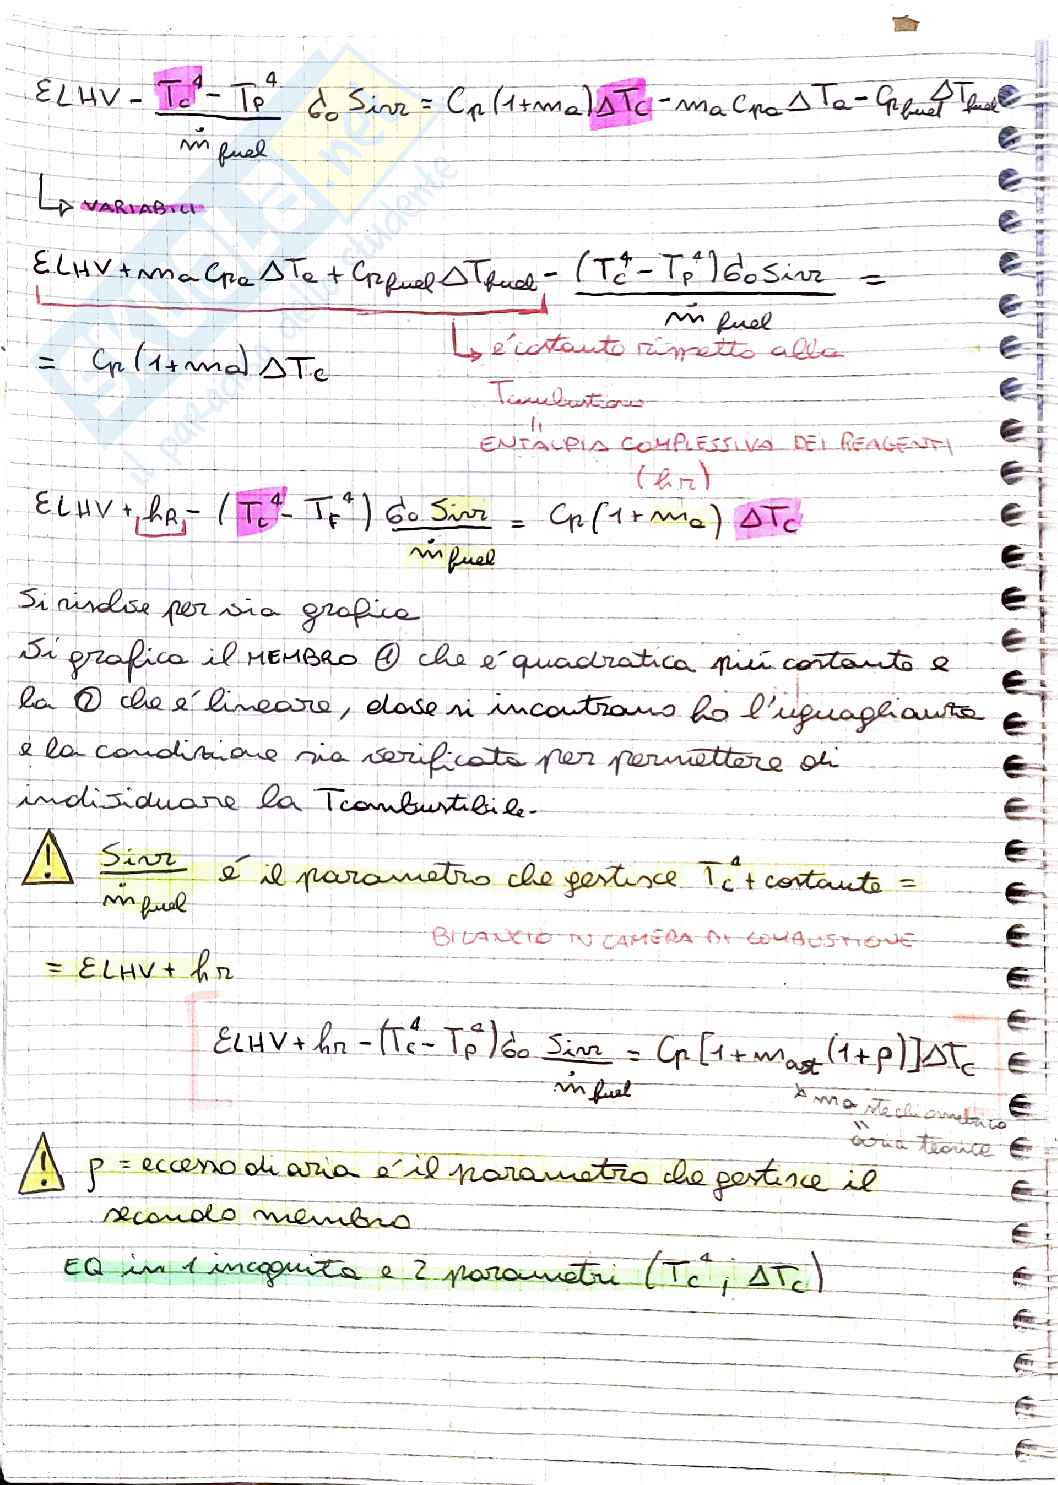 εLHV - (Tc⁴ - Tp⁴)/ṁfuel σo Sirr = Cp(1+ma)ΔTc - ma Cpa ΔTa - Cpfuel ΔTfuel
↳ VARIABILI
εLHV + ma Cpa ΔTa + Cpfuel ΔTfuel - (Tc⁴ - Tp⁴)σo Sirr/ṁfuel =
↳ é costante rispetto alla
= Cp(1+ma)ΔTc
Tcombustione
=
ENTALPIA COMPLESSIVA DEI REAGENTI
(hr)
εLHV + hR - (Tc⁴ - TF⁴) σo Sirr/ṁfuel = Cp(1+ma) ΔTc
Si risolve per via grafica
Si grafica il MEMBRO ① che é quadratica piú costante e
la ② che é lineare, dove si incontrano ho l'uguaglianza
e la condizione sia verificata per permettere di
individuare la Tcombustibile.
! Sirr/ṁfuel é il parametro che gestisce Tc⁴ + costante =
BILANCIO IN CAMERA DI COMBUSTIONE
= εLHV + hr
εLHV + hr - (Tc⁴ - Tp⁴)σo Sirr/ṁfuel = Cp[1+mast(1+ρ)]ΔTc
ma stechiometrico
=
aria teorica
! ρ = eccesso di aria é il parametro che gestisce il
secondo membro
EQ in 1 incognita e 2 parametri (Tc⁴ ; ΔTc)
il paradiso dello studente